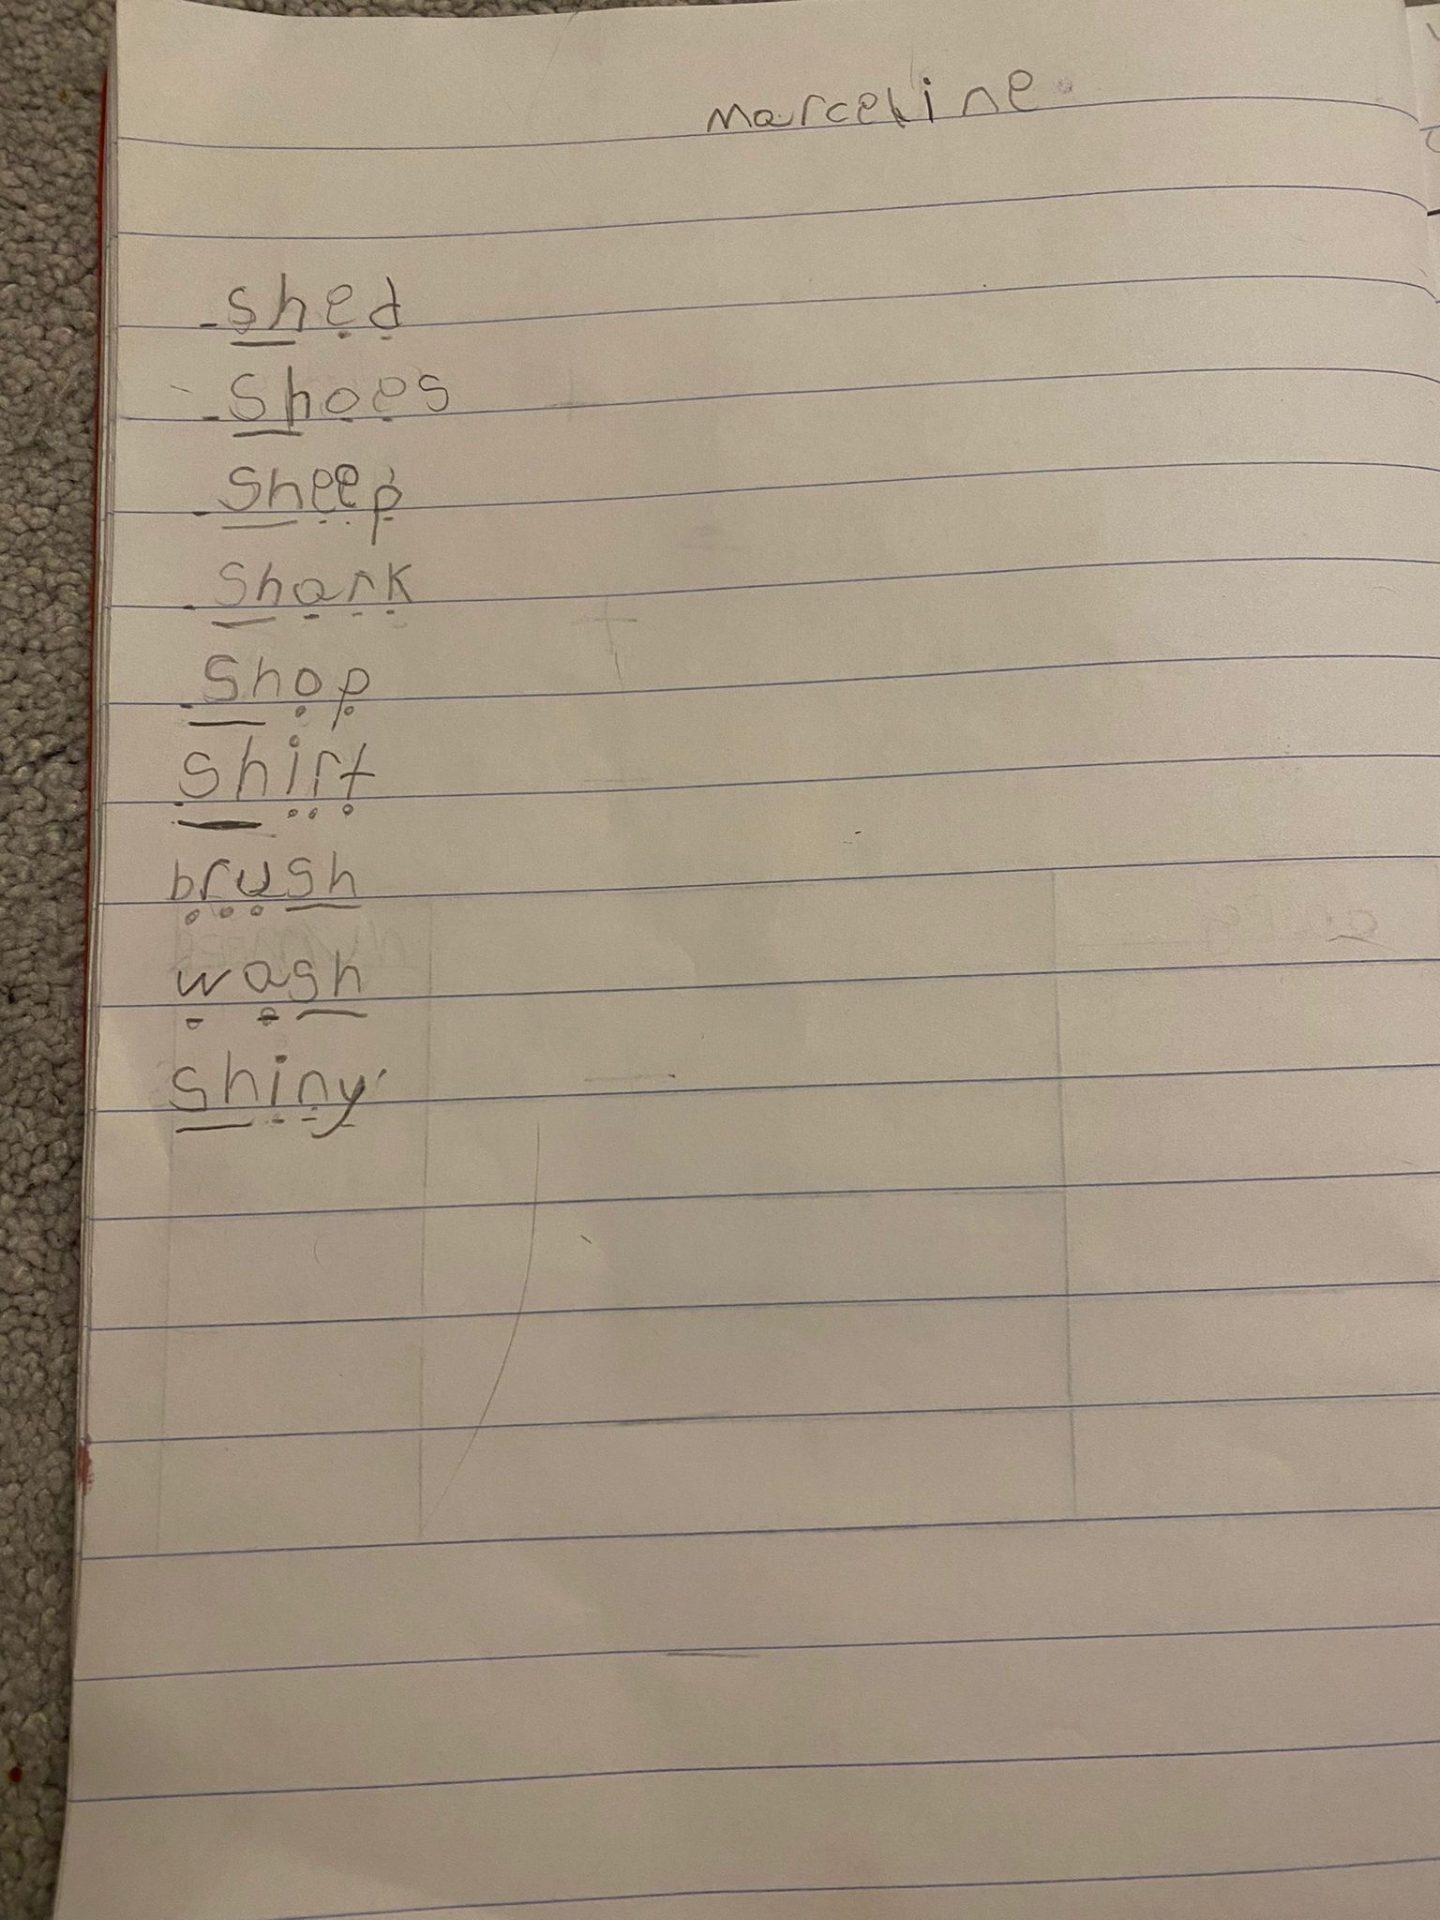 Marceline
- shed
- shoes
- sheep
- shark
- shop
shirt
brush
wash
shiny